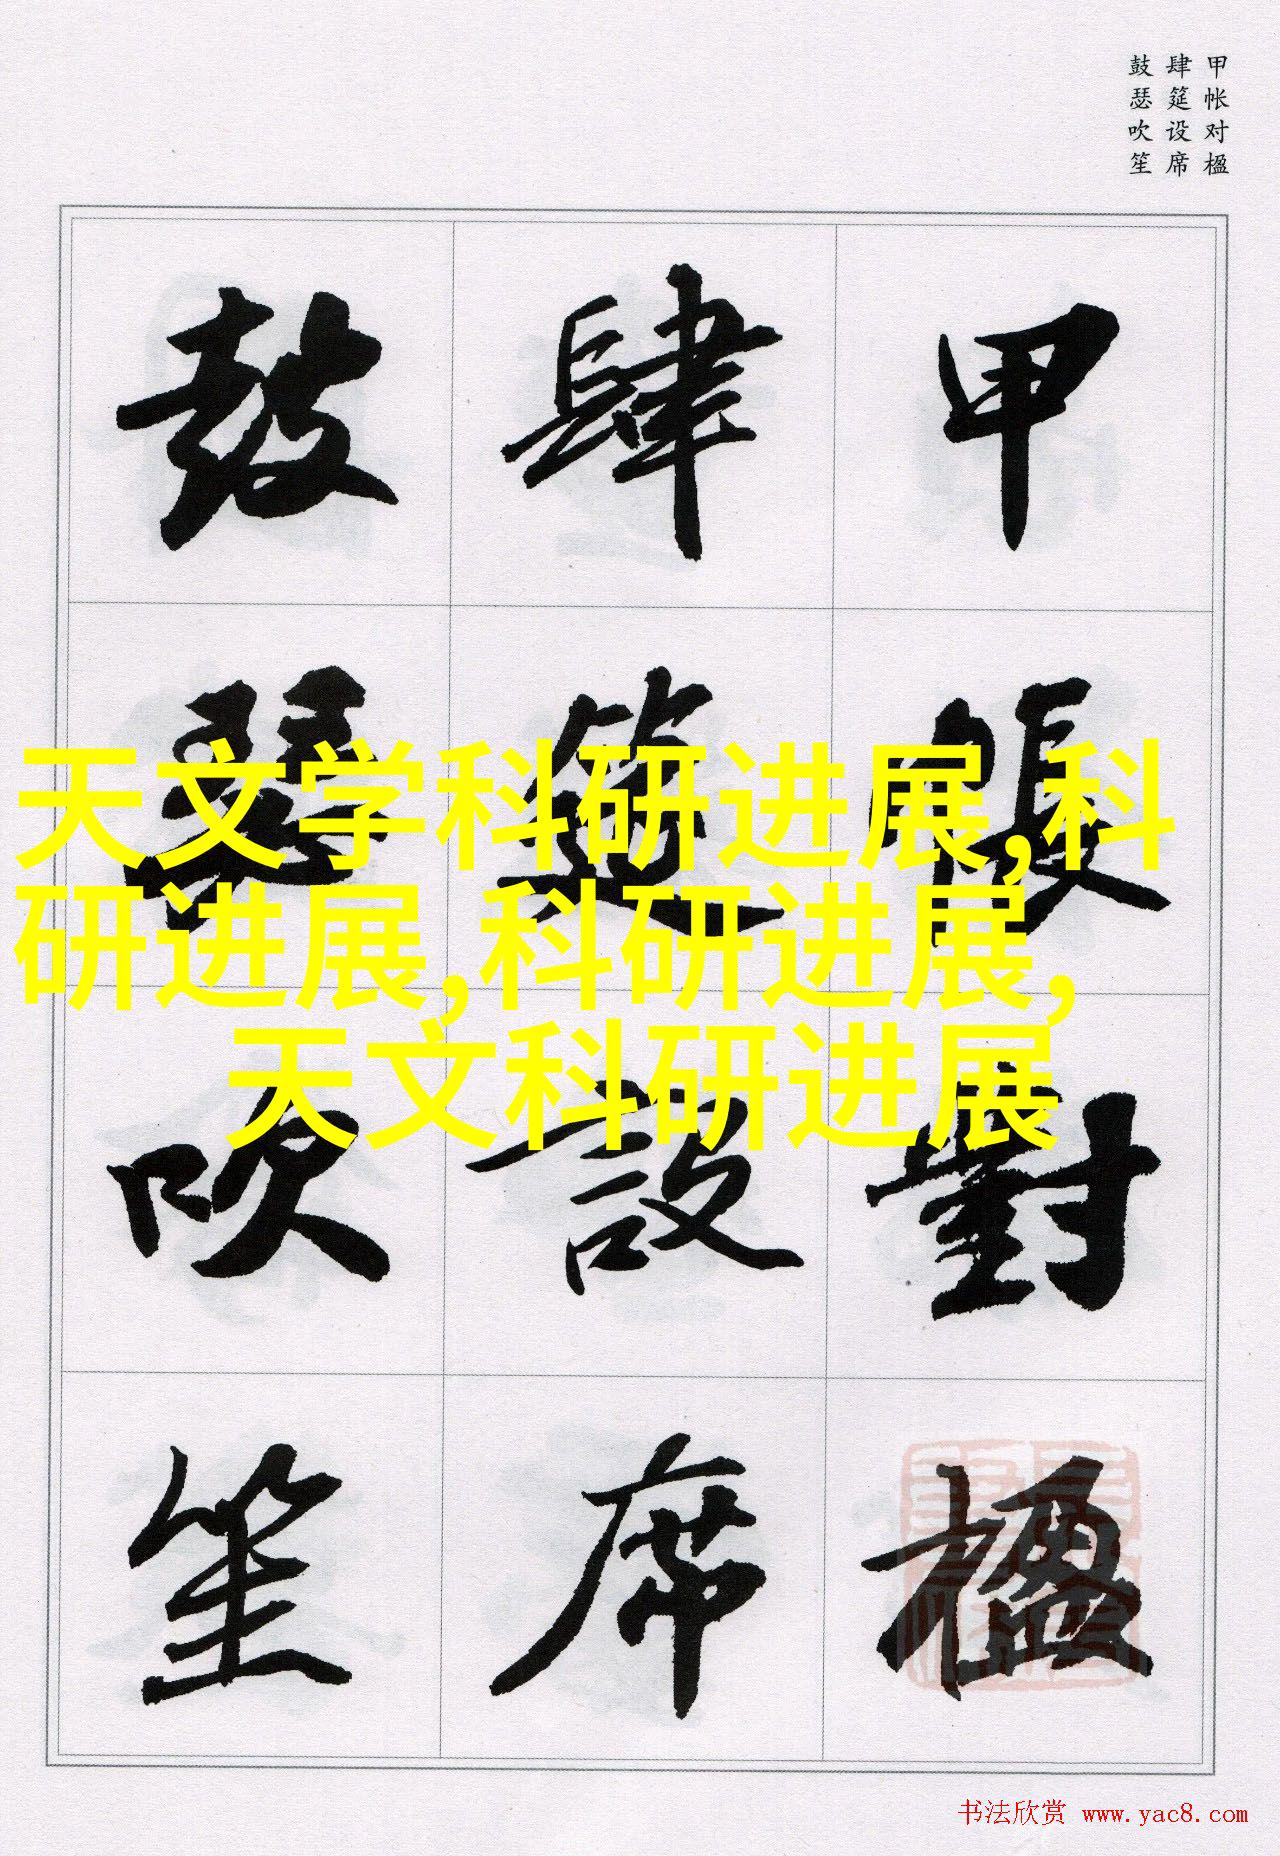 甲帐对楹
肆筵设席
鼓瑟吹笙
甲帳對楹
肆筵設席
鼓瑟吹笙
天文学科研进展,科
研进展,科研进展,
天文科研进展
书法欣赏 www.yac8.com